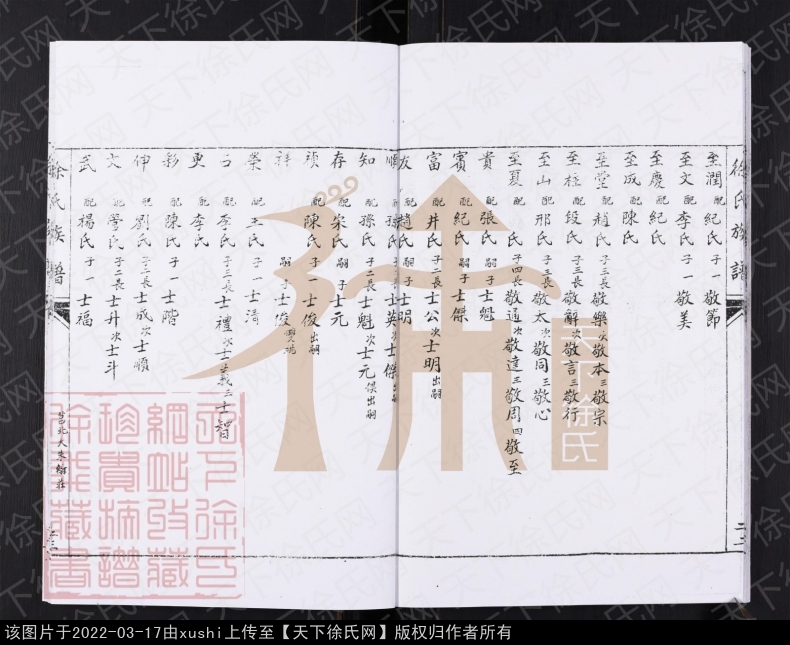 徐氏族譜
至潤 配紀氏 子一 敬節
至文 配李氏 子一 敬美
至慶 配紀氏
至成 配陳氏
至堂 配趙氏 子三長敬樂次敬本三敬宗
至柱 配段氏 子三長敬辭次敬言三敬行
至山 配邢氏 子三長敬太次敬同三敬心
至夏 配 氏 子四長敬通次敬達三敬周四敬至
貴 配張氏 嗣子士魁
賓 配紀氏 嗣子士傑
富 配井氏 子二長士公次士明出嗣
友 配趙氏 嗣子士明
順 配孫氏 子二長士英次士傑出嗣
知 配孫氏 子二長士魁次士元俱出嗣
存 配宋氏 嗣子士元
禎 配陳氏 子一士俊出嗣
祥 嗣子士俊
榮 配王氏 子一士濤
配李氏 子三長士禮次士義三士智
更 配李氏
彩 配陳氏 子一士階
伊 配劉氏 子二長士成次士順
文 配 氏 子二長士升次士斗
武 配楊氏 子一士福
徐氏族譜
天下徐氏
天下徐氏
網站收藏
珍貴族譜
徐氏藏書
该图片于2022-03-17由xushi上传至【天下徐氏网】版权归作者所有